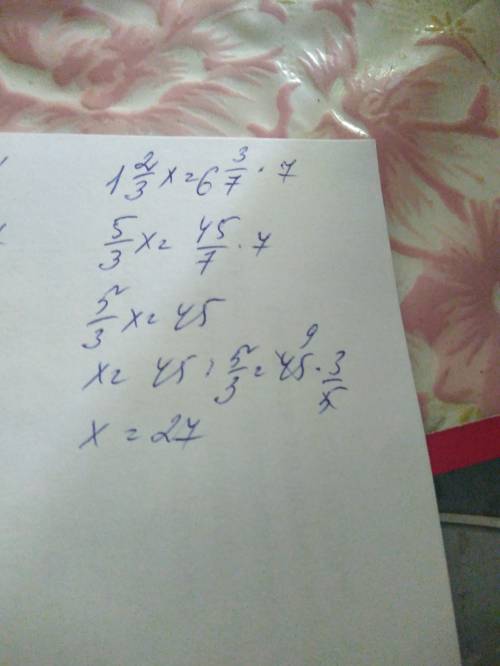 1 2/3 x = 6 3/7 · 7
5/3 x = 45/7 · 7
5/3 x = 45
x = 45 : 5/3 = 45 9 · 3/5
x = 27